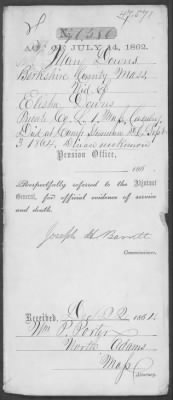 47,571
No.
ACT OF JULY 14, 1862.
Mary Downs
Berkshire County, Mass
Wid of
Elisha Downs
Private Co. L. 1 Mass Cavalry
Died at Camp Sept.
3 1864,
Pension Office,
186 .
Respectfully referred to the Adjutant
General, for official evidence of service
and death.
Joseph H Barrett
Commissioner.
Received, Dec 22 1864
Wm P. Porter
North Adams
Mass
Attorney.